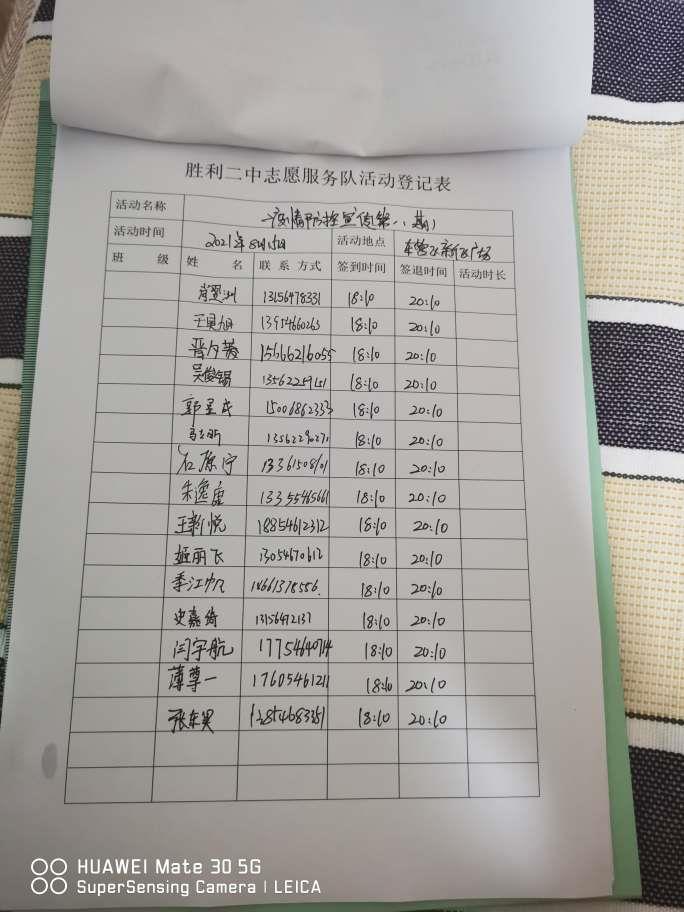 胜利二中志愿服务队活动登记表
活动名称 疫情防控宣传第八期
活动时间 2021年8月15日 活动地点 东营区新区广场
班 级 姓 名 联系方式 签到时间 签退时间 活动时长
肖翌洲 13156478331 18:10 20:10
13954660263 18:10 20:10
晋月茜 15666216055 18:10 20:10
吴俊锡 13562259151 18:10 20:10
郭星成 15006862333 18:10 20:10
13562290271 18:10 20:10
石原宁 18:10 20:10
朱逸童 13355465661 18:10 20:10
王新悦 18854612312 18:10 20:10
姬丽飞 18:10 20:10
季江帆 18661378556 18:10 20:10
史嘉绮 18:10 20:10
闫宇航 17754640714 18:10 20:10
薄尊一 17605461211 18:10 20:10
张东昊 18:10 20:10
HUAWEI Mate 30 5G
SuperSensing Camera | LEICA